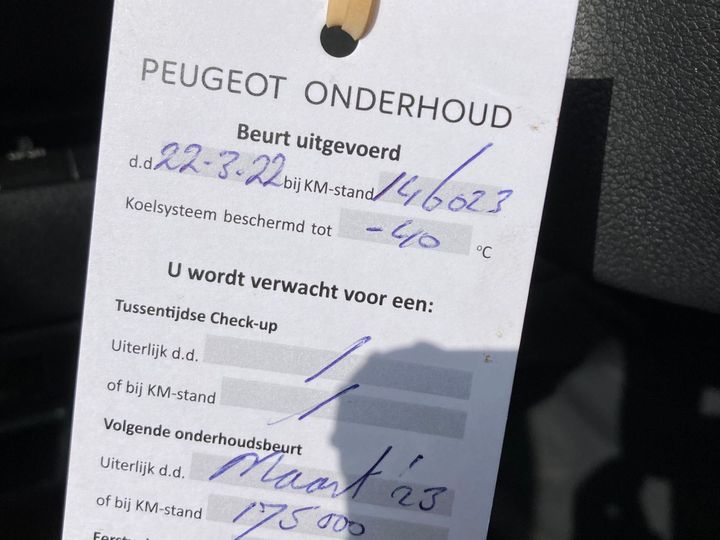 PEUGEOT ONDERHOUD
Beurt uitgevoerd
d.d 22-3-22 bij KM-stand 146023
Koelsysteem beschermd tot -40 °C
U wordt verwacht voor een:
Tussentijdse Check-up
Uiterlijk d.d. /
of bij KM-stand /
Volgende onderhoudsbeurt
Uiterlijk d.d. Maart '23
of bij KM-stand 175000